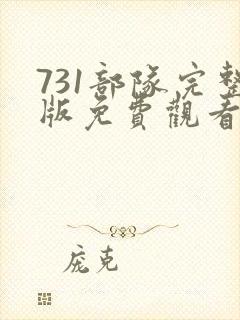 731部隊完整
版免費觀看
庞克